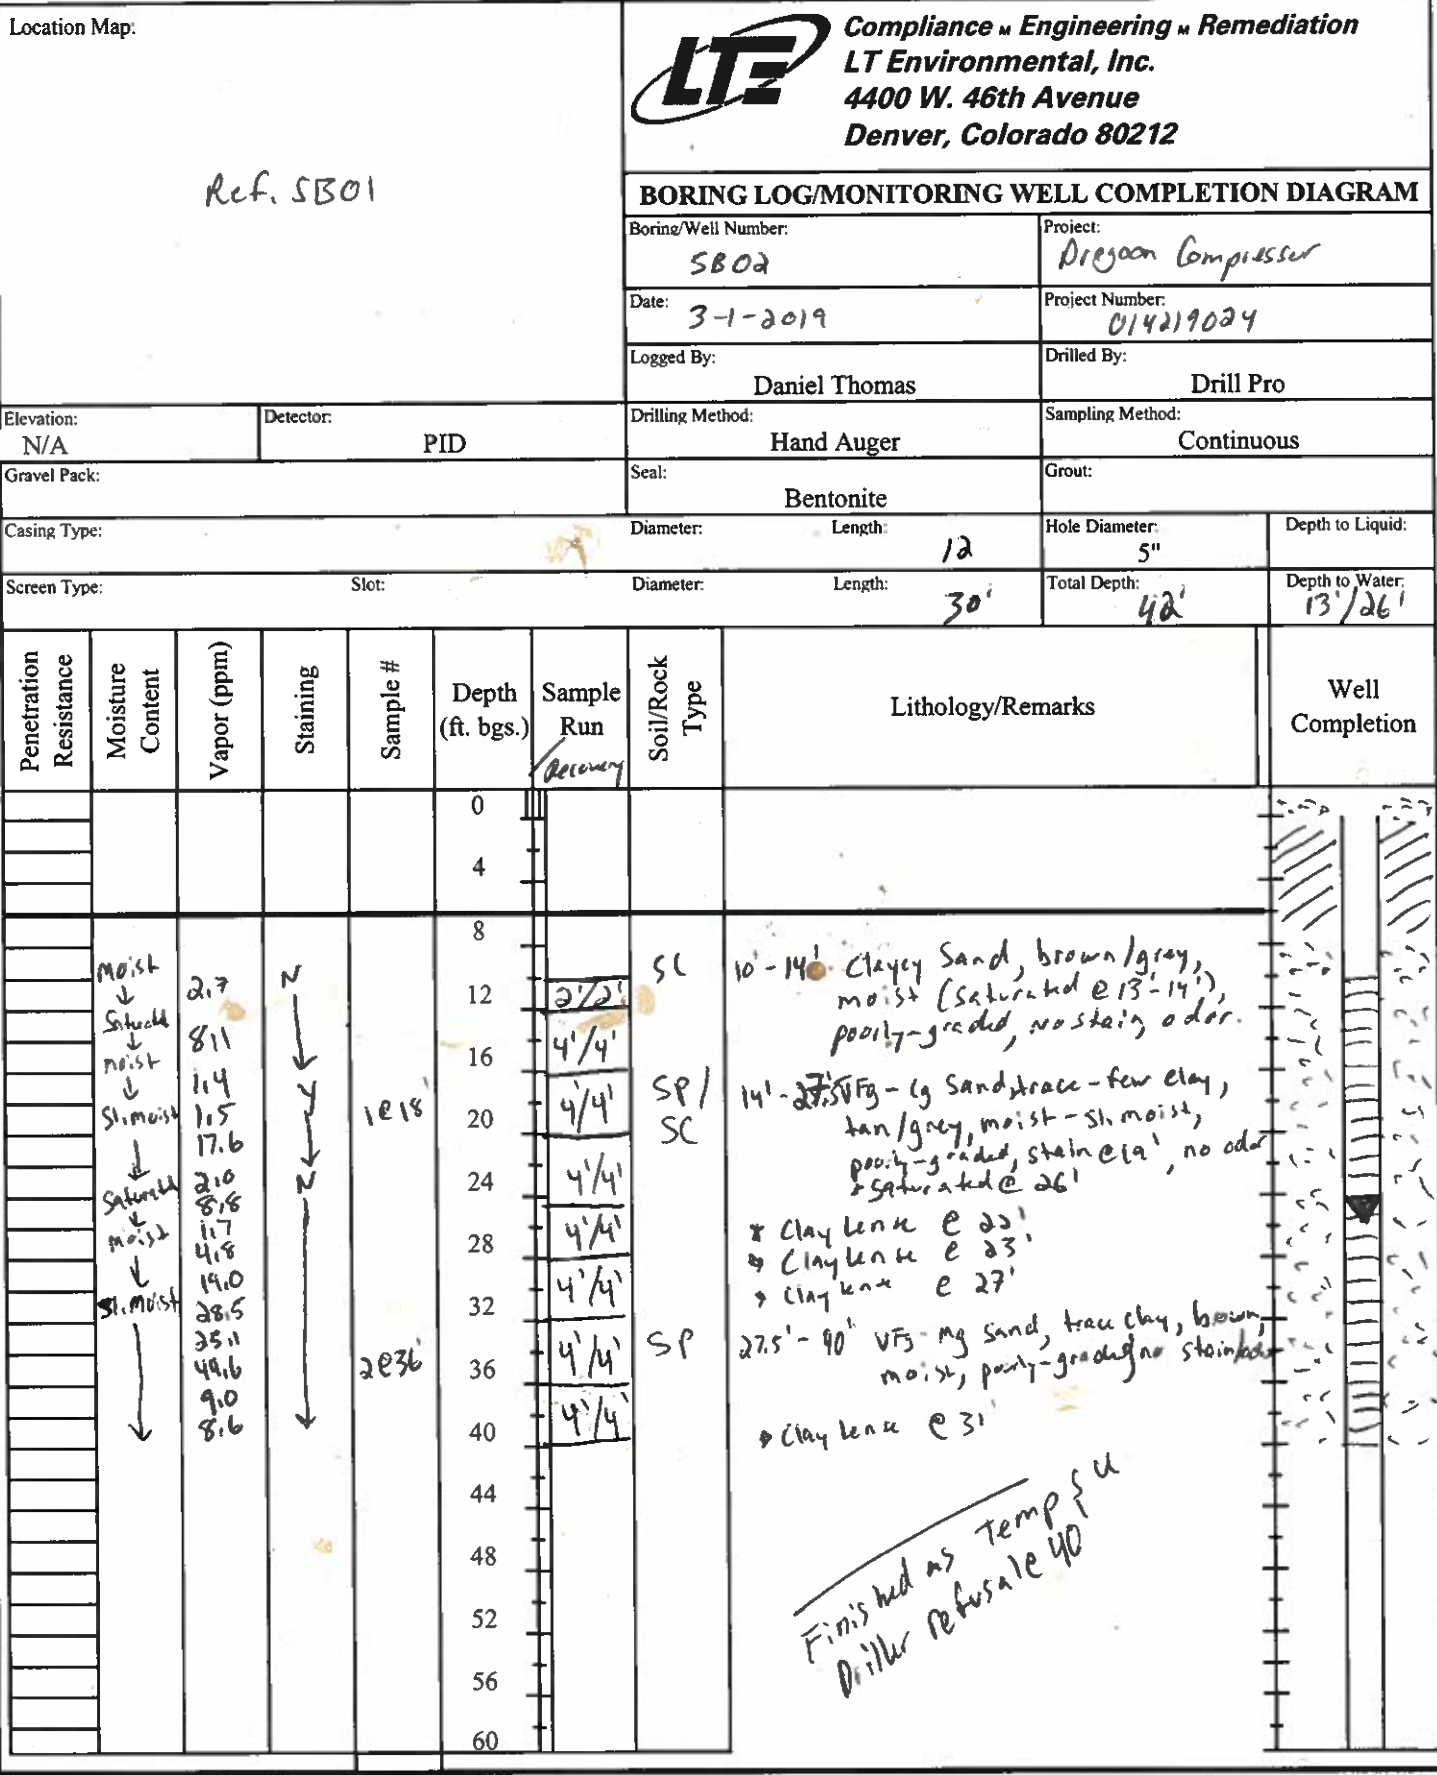 Location Map:
Ref. SB01
LTE
Compliance M Engineering M Remediation
LT Environmental, Inc.
4400 W. 46th Avenue
Denver, Colorado 80212
BORING LOG/MONITORING WELL COMPLETION DIAGRAM
Boring/Well Number:
SB02
Project:
Dregoon Compressor
Date:
3-1-2019
Project Number:
014219024
Logged By:
Daniel Thomas
Drilled By:
Drill Pro
Elevation:
N/A
Detector:
PID
Drilling Method:
Hand Auger
Sampling Method:
Continuous
Gravel Pack:
Seal:
Bentonite
Grout:
Casing Type:
Diameter:
Length:
12
Hole Diameter:
5"
Depth to Liquid:
Screen Type:
Slot:
Diameter:
Length:
30'
Total Depth:
42'
Depth to Water:
13'/26'
Penetration
Resistance
Moisture
Content
Vapor (ppm)
Staining
Sample #
Depth
(ft. bgs.)
Sample
Run
/Recovery
Soil/Rock
Type
Lithology/Remarks
Well
Completion
0
4
8
12
16
20
24
28
32
36
40
44
48
52
56
60
moist
Saturated
moist
Sl. moist
Saturated
moist
Sl. moist
2.7
811
1.4
1.5
17.6
2.0
8.8
1.7
4.8
19.0
28.5
25.1
49.6
9.0
8.6
N
Y
N
1@18'
2@36'
2'/2'
4'/4'
4/4'
4'/4'
4'/4'
4'/4'
4'/4'
4'/4'
SC
SP/
SC
SP
10'-14' Clayey Sand, brown/grey,
moist (saturated @ 13'-14'),
poorly-graded, no stain, odor.
14'-27.5' VFg-cg Sand, trace-few clay,
tan/grey, moist-sl. moist,
poorly-graded, stain @ 19', no odor
* saturated @ 26'
* Clay Lense @ 22'
* Clay Lense @ 23'
* Clay Lense @ 27'
27.5'-40' VFg-Mg Sand, trace clay, brown,
moist, poorly-graded, no stain/odor
* Clay Lense @ 31'
Finished as Temp
Driller refusal @ 40'